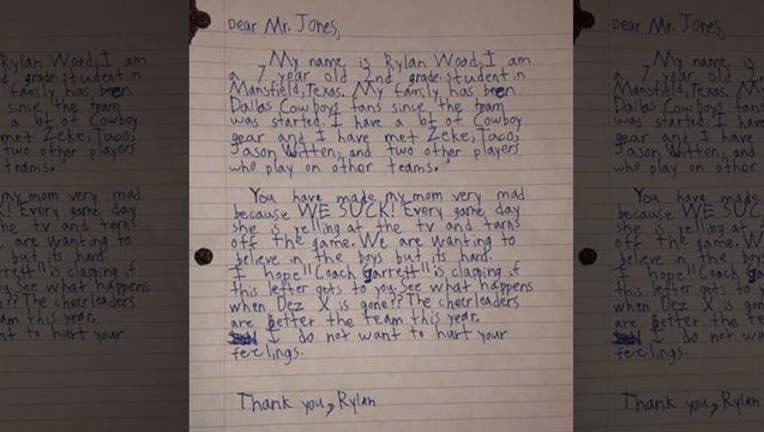 Dear Mr. Jones,
My name is Rylan Wood, I am
a 7 year old 2nd grade student in
Mansfield, Texas. My family has been
Dallas Cowboys fans since the team
was started. I have a lot of Cowboy
gear and I have met Zeke, Taco,
Jason Witten, and two other players
who play on other teams.
You have made my mom very mad
because WE SUCK! Every game day
she is yelling at the tv and turns
off the game. We are wanting to
believe in the boys but its hard.
I hope "Coach garrett" is clapping if
this letter gets to you. See what happens
when Dez X is gone?? The cheerleaders
are better the team this year.
I do not want to hurt your
feelings.
Thank you, Rylan